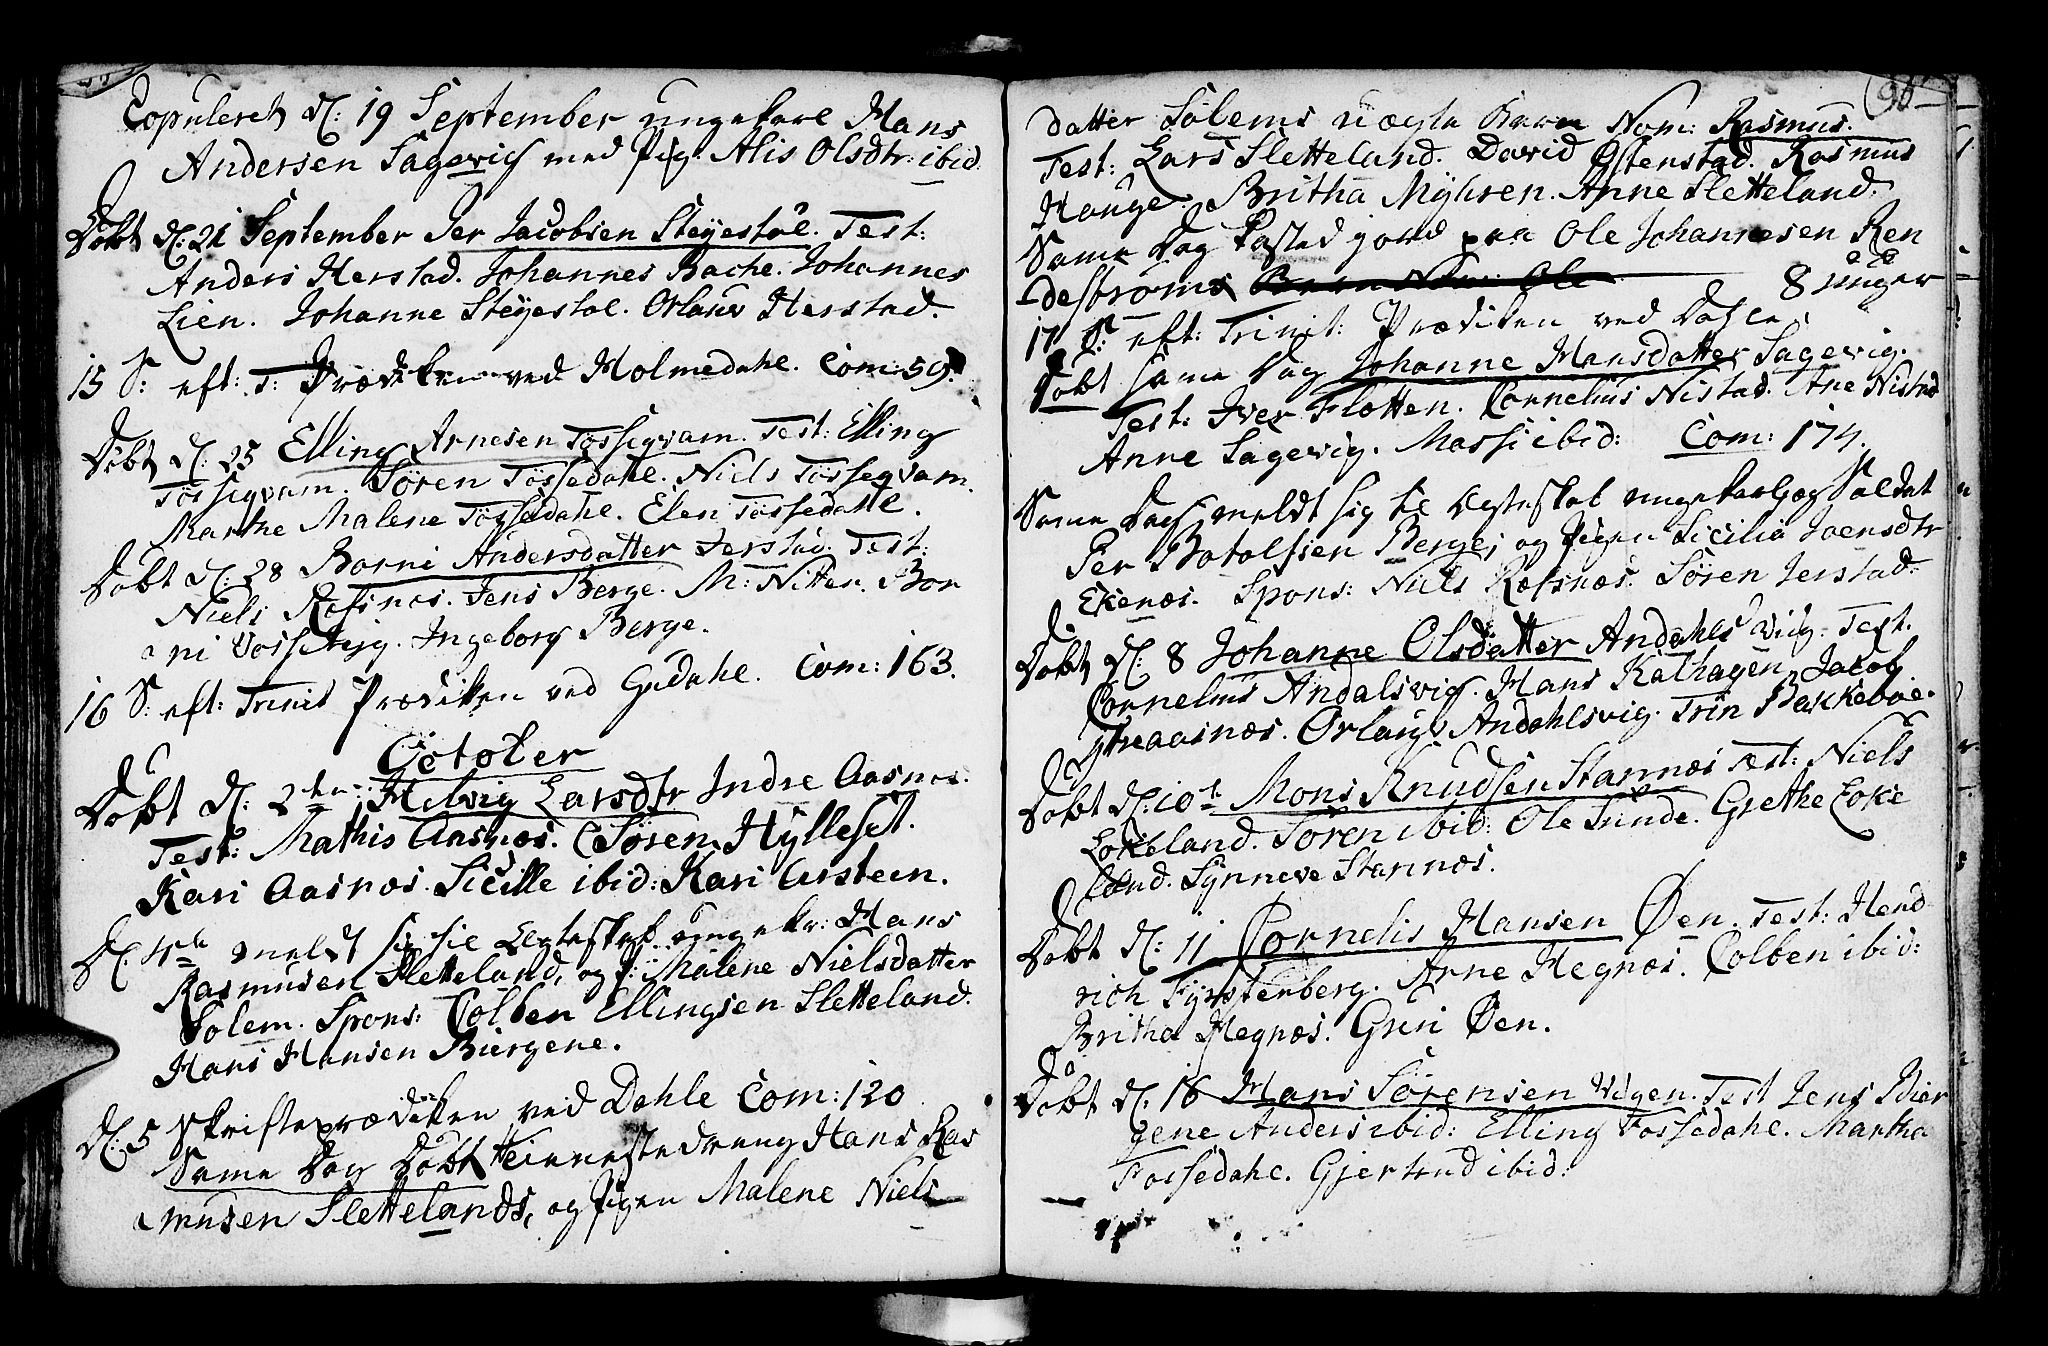 Copuleret d: 19 September ungekarl Hans
Andersen Sagevig med Pig: Alis Olsdtr: ibid.
Döbt d: 21 September Per Jacobsen Steyestöl. Test:
Anders Herstad. Johannes Bache. Johannes
Lien. Johanne Steyestöl. Orlaug Herstad.
15 S: eft: T: Prædiken ved Holmedahl. Com: 59.
Döbt d: 25 Elling Arnesen Tössegvam. Test: Elling
Tössegvam. Sören Tössedahl. Niels Tössegvam.
Marthe Malene Tössedahl. Elen Tössedahl.
Döbt d: 28 Borni Andersdatter Jerstad. Test:
Niels Rafsnæs. Jens Berge. M: Nitter. Bor
ni Ingeborg Berge.
16 S: eft: Trinit Prædiken ved Gudahl. Com: 163.
October
Döbt d: 2den Helvig Larsdtr Indre Aasnæs.
Test: Mathis Aasnæs. Sören Hylleset.
Kari Aasnæs. Sicille ibid: Kari Arsteen.
d: 4de meldt sig til Egteskab ungekr: Hans
Rasmusen Sletteland, og P: Malene Nielsdatter
Solem. Spons: Colben Ellingsen Sletteland.
Hans Hansen Biergene.
d: 5 Skrifteprædiken ved Dahle Com: 120
Same Dag Döbt Tienestedreng Hans Ras
musen Slettelands, og Pigen Malene Niels
datter Solems uægte Barn Nom: Rasmus.
Test: Lars Sletteland. David Ostenstad. Rasmus
Hauge. Britha Myhren. Anne Sletteland.
Same Dag kasted jord paa Ole Johannesen Ren
destroms Barn Nom: Ole 8 uger
17 S: eft: Trinit: Prædiken ved Dahle.
Döbt same Dag Johanne Hansdatter Sagevig.
Test: Iver Flotten. Cornelius Nistad. Ane Nistad
Anne Sagevig. Massi ibid: Com: 174.
Same Dag meldt sig til Egteskab ungekarl og Soldat
Per Botolfsen Berge, og Pigen Sicilia Joensdtr
Ekenæs. Spons: Niels Rafsnæs. Sören Jerstad.
Döbt d: 8 Johanne Olsdatter Andahls viig. Test.
Cornelius Andalsvig. Hans Kalhagen. Jacob
Ytreaasnæs. Orlaug Andahlsvig. Trin Bakkeböe.
Döbt d: 10de Mons Knudsen Stannæs Test: Niels
Lokeland. Sören ibid: Ole Sunde. Grethe Loke
land. Synneve Stannæs.
Döbt d: 11 Cornelis Hansen Øen. Test: Hend
rich Fyrstenberg. Arne Hegnæs. Colben ibid:
Britha Hegnæs. Guri Øen.
Döbt d: 16 Hans Sörensen Vigen. Test Jens Bier
gene Anders ibid: Elling Fossedahl. Martha
Fossedahl. Gjertrud ibid: